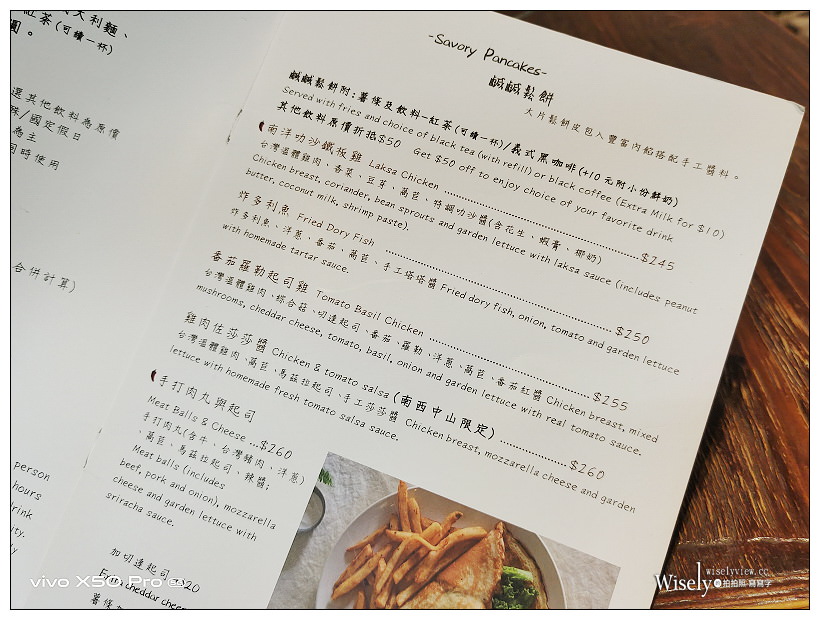 大利麵、
紅茶(可續一杯)
圈。
選其他飲料為原價
/國定假日
為主
同時使用
合併計算)
person
hours
drink
-Savory Pancakes-
鹹鹹鬆餅
大片鬆餅皮包入豐富內餡搭配手工醬料。
鹹鹹鬆餅附:薯條及飲料-紅茶(可續一杯)/義式黑咖啡(+10元附小份鮮奶)
Served with fries and choice of black tea (with refill) or black coffee (Extra Milk for $10)
其他飲料原價折抵$50 Get $50 off to enjoy choice of your favorite drink
南洋叻沙鐵板雞 Laksa Chicken ........ $245
台灣溫體雞肉、香菜、豆芽、萵苣、特調叻沙醬(含花生、蝦膏、椰奶)
Chicken breast, coriander, bean sprouts and garden lettuce with laksa sauce (includes peanut
butter, coconut milk, shrimp paste).
炸多利魚 Fried Dory Fish ........ $250
炸多利魚、洋蔥、番茄、萵苣、手工塔塔醬 Fried dory fish, onion, tomato and garden lettuce
with homemade tartar sauce.
番茄羅勒起司雞 Tomato Basil Chicken ........ $255
台灣溫體雞肉、綜合菇、切達起司、番茄、羅勒、洋蔥、萵苣、番茄紅醬 Chicken breast, mixed
mushrooms, cheddar cheese, tomato, basil, onion and garden lettuce with real tomato sauce.
雞肉佐莎莎醬 Chicken & tomato salsa (南西中山限定) ........ $260
台灣溫體雞肉、萵苣、馬茲拉起司、手工莎莎醬 Chicken breast, mozzarella cheese and garden
lettuce with homemade fresh tomato salsa sauce.
手打肉丸與起司
Meat Balls & Cheese ...$260
手打肉丸(含牛、台灣豬肉、洋蔥)
、萵苣、馬茲拉起司、辣醬;
Meat balls (includes
beef, pork and onion), mozzarella
cheese and garden lettuce with
sriracha sauce.
加切達起司 $20
Extra cheddar cheese
薯條
vivo X50 Pro 5G
Wisely的拍拍照寫寫字
wiselyview.cc